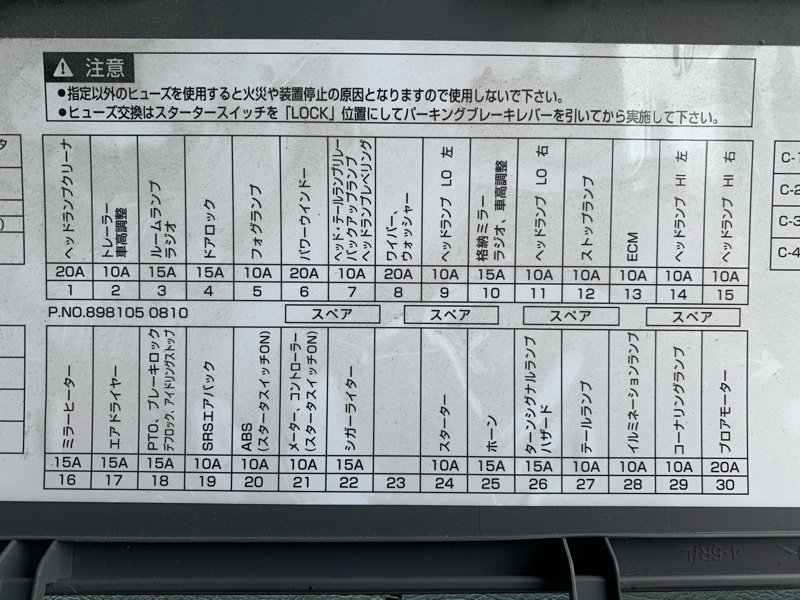 注意
●指定以外のヒューズを使用すると火災や装置停止の原因となりますので使用しないで下さい。
●ヒューズ交換はスタータースイッチを「LOCK」位置にしてパーキングブレーキレバーを引いてから実施して下さい。
ヘッドランプクリーナ
トレーラー
車高調整
ルームランプ
ラジオ
ドアロック
フォグランプ
パワーウインドー
ヘッド・テールランプリレー
バックアップランプ
ヘッドランプレベリング
ワイパー、
ウォッシャー
ヘッドランプ LO 左
格納ミラー
ラジオ、車高調整
ヘッドランプ LO 右
ストップランプ
ECM
ヘッドランプ HI 左
ヘッドランプ HI 右
20A 10A 15A 15A 10A 20A 10A 20A 10A 15A 10A 10A 10A 10A 10A
1 2 3 4 5 6 7 8 9 10 11 12 13 14 15
P.NO.898105 0810 スペア スペア スペア スペア
ミラーヒーター
エアドライヤー
PTO、ブレーキロック
デフロック、アイドリングストップ
SRSエアバック
ABS
(スタータスイッチON)
メーター、コントローラー
(スタータスイッチON)
シガーライター
スターター
ホーン
ターンシグナルランプ
ハザード
テールランプ
イルミネーションランプ
コーナリングランプ
ブロアモーター
15A 15A 15A 10A 10A 10A 15A 10A 15A 15A 10A 10A 10A 20A
16 17 18 19 20 21 22 23 24 25 26 27 28 29 30
C-1
C-2
C-3
C-4
4·5R/L